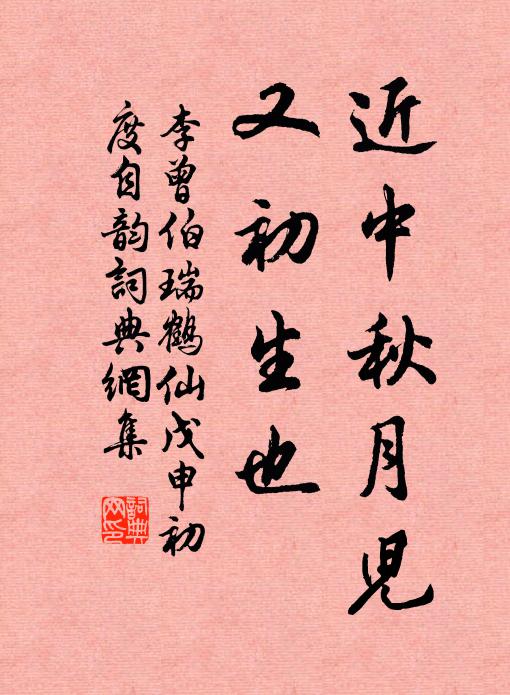 近中秋月児
又初生也
李曾伯瑞鶴仙戊申初
度自韵詞典網集
詞典網印